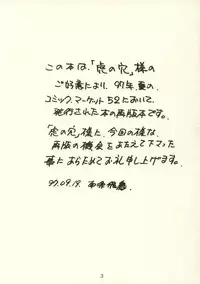 この本は、「虎の穴」様の
ご好意により、97年、夏の
コミック.マーケット52において、
発行された本の再版本です。
「虎の穴」様に、今回の様な、
再版の機会をあたえて下さった
事にあらためてお礼申し上げます。
97.09.19.
3